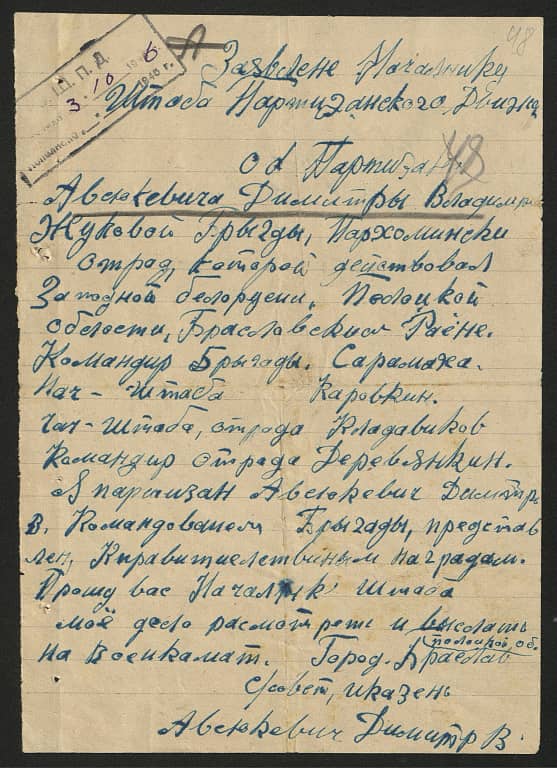 48
Ш. П. Д.
3. 10 1946 г.
Заявлене Началнику
Штаба Партизанского Движен
од Партизана
48
Авсюкевича Димитры Владимир
Жуковой Брыгады, Пархомински
отрад, которой действовал
Западной белорусии, Полоцкой
области, Браславским Раёне.
Командир Брыгады. Сарамажа.
Нач - Штаба Каровкин.
Нач - Штаба, отрада Кладавиков
Командир отрада Деревянкин.
Я партизан Авсюкевич Димитр
В. Командованем Брыгады, представ
лен, Кправителетвиным наградам.
Прошу вас Началник Штаба
моё дело расмотреть и выслать
на Военкамат. Город. Браслав
полоцкой об.
Совет,
Авсюкевич Димитр В.